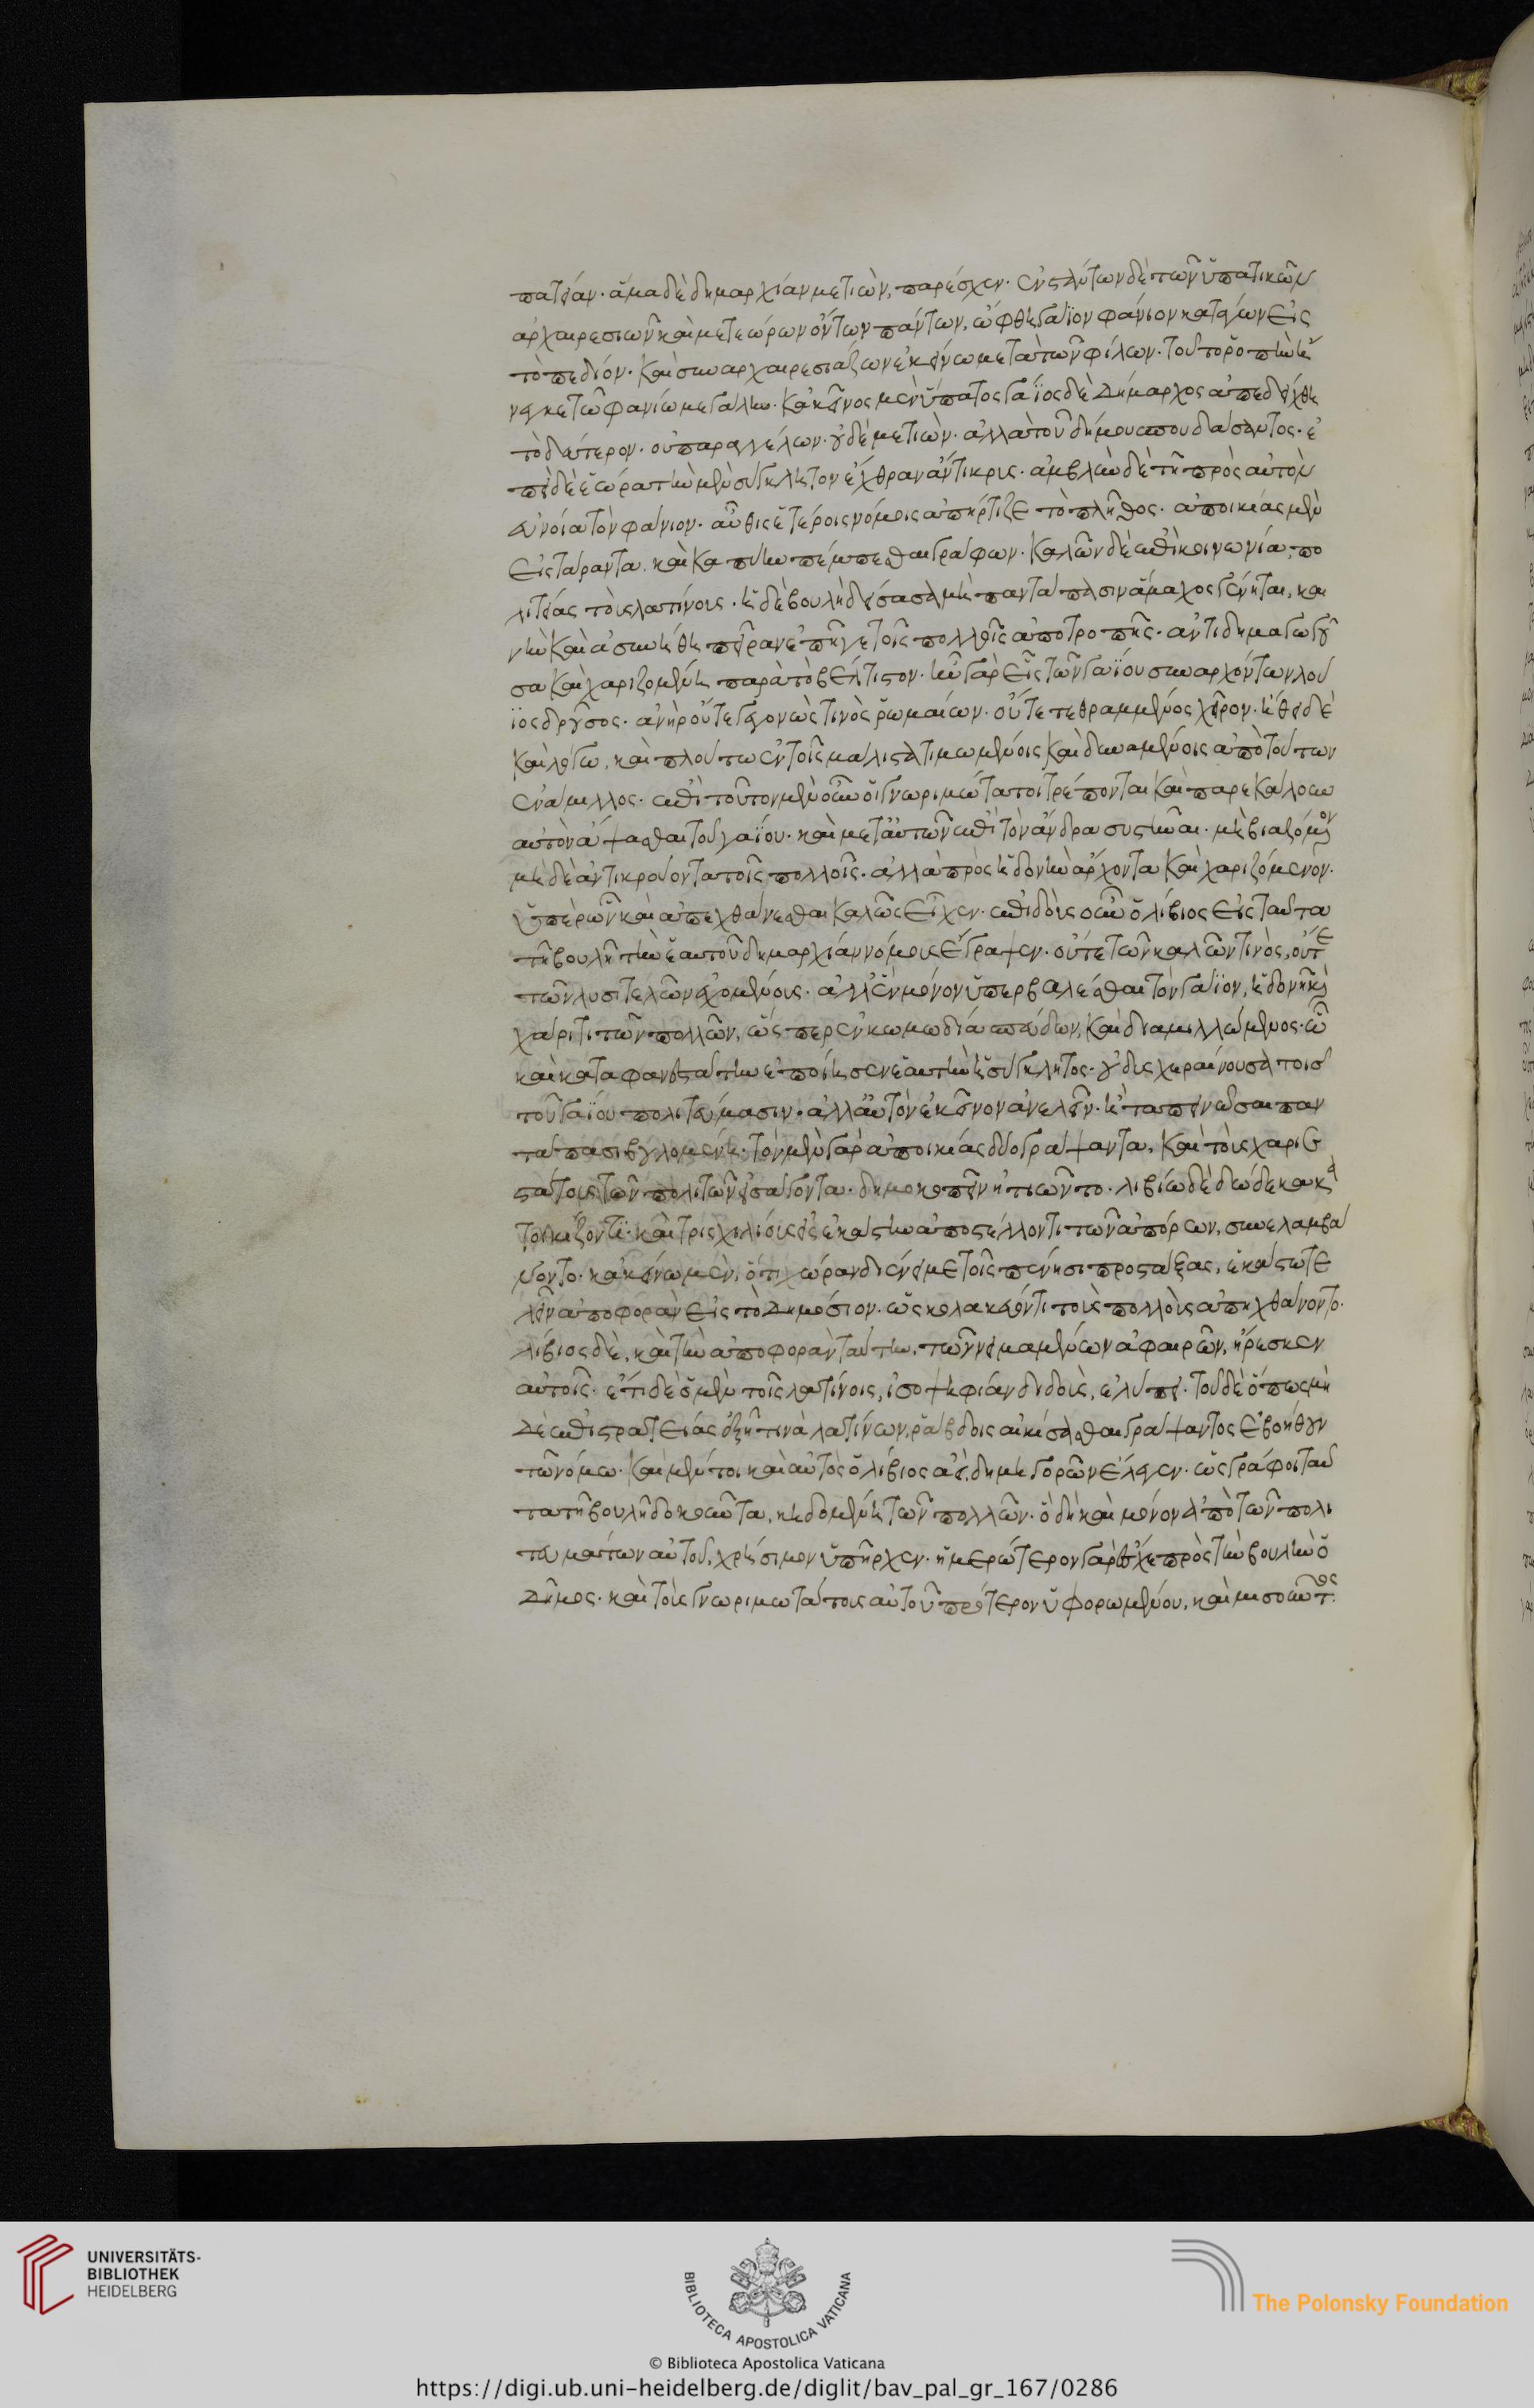 πατείαν· ἅμα δὲ δημαρχίαν μετιὼν, παρέσχεν· ἐνστάντων δὲ τῶν ὑπατικῶν
ἀρχαιρεσιῶν καὶ μετεώρων ὄντων πάντων, ὤφθη γάϊον φάνιον κατάγων εἰς
τὸ πεδίον· καὶ συναρχαιρεσιάζων ἐκείνω μετὰ τῶν φίλων· τοῦτο ῥοπὴν ἤ
νεγκε τῶ φανίω μεγάλην. κἀκεῖνος μὲν ὕπατος γάϊος δὲ δήμαρχος ἀπεδείχθη
τὸ δεύτερον· οὐ παραγγέλων· οὐδὲ μετιὼν· ἀλλὰ τοῦ δήμου σπουδάσαντος· ἐ
πεὶ δὲ ἑώρα τὴν μὲν σύγκλητον ἐχθρὰν ἄντικρις· ἀμβλὺν δὲ τῆ πρὸς αὐτὸν
εὐνοία τὸν φάνιον· αὖθις ἑτέροις νόμοις ἀπήρτιζε τὸ πλῆθος· ἀποικίας μὲν
εἰς τάραντα, καὶ καπύην πέμπεσθαι γράφων· καλῶν δὲ ἐπὶ κοινωνία, πο
λιτείας τοὺς λατίνους. ἡ δὲ βουλὴ δείσασα μὴ παντάπασιν ἄμαχος γένηται, και
νὴν καὶ ἀσυνήθη πεῖραν ἐπῆγε τοῖς πολλοῖς ἀποτροπῆς· ἀντιδημαγωγοῦ
σα καὶ χαριζομένη παρὰ τὸ βέλτιστον· ἦν γὰρ εἷς τῶν γαΐου συναρχόντων λού
ϊος δροῦσος· ἀνὴρ οὔτε γεγονὼς τινὸς ῥωμαίων· οὔτε τεθραμμένος χεῖρον· ἤθει δὲ
καὶ λόγω, καὶ πλούτω ἐν τοῖς μάλιστα τιμωμένοις καὶ δυναμένοις ἀπὸ τούτων
ἐνάμιλλος· ἐπὶ τοῦτον μὲν οὖν οἱ γνωριμώτατοι τρέπονται καὶ παρεκάλουν
αὐτὸν ἅψασθαι τοῦ γαΐου· καὶ μετ' αὐτῶν ἐπὶ τὸν ἄνδρα συστῆναι· μὴ βιαζόμενον
μηδὲ ἀντικρούοντα τοῖς πολλοῖς· ἀλλὰ πρὸς ἡδονὴν ἄρχοντα καὶ χαριζόμενον·
ὑπὲρ ὧν καὶ ἀπεχθάνεσθαι καλῶς εἶχεν· ἐπιδοὺς οὖν ὁ λίβιος εἰς ταῦτα
τῆ βουλῆ τὴν ἑαυτοῦ δημαρχίαν νόμους ἔγραψεν· οὔτε τῶν καλῶν τινὸς, οὔτε
τῶν λυσιτελῶν ἐχομένους· ἀλλ' ἓν μόνον ὑπερβαλέσθαι τὸν γάϊον, ἡδονῆ καὶ
χάριτι τῶν πολλῶν, ὥσπερ ἐν κωμωδία σπεύδων, καὶ διαμιλλώμενος· ὧ
καὶ καταφανεστάτην ἐποίησεν ἑαυτὴν ἡ σύγκλητος· οὐ δυσχεραίνουσα τοῖσ
τοῦ γαΐου πολιτεύμασιν· ἀλλ' αὐτὸν ἐκεῖνον ἀνελεῖν· ἢ ταπεινῶσαι παν
τάπασι βουλομένη· τὸν μὲν γὰρ ἀποικίας δύο γράψαντα, καὶ τοὺς χαριε
στάτους τῶν πολιτῶν εἰσάγοντα· δημοκοπεῖν ἠτιῶντο. λιβίω δὲ δώδεκα κα
τοικίζοντι· καὶ τρισχιλίους εἰς ἑκάστην ἀποστέλλοντι τῶν ἀπόρων, συνελαμβά
νοντο· κἀκείνω μὲν, ὅτι χώραν διένειμε τοῖς πένησι προστάξας, ἑκάστω τε
λεῖν ἀποφορὰν εἰς τὸ δημόσιον· ὡς κολακεύοντι τοὺς πολλοὺς ἀπηχθάνοντο·
λίβιος δὲ, καὶ τὴν ἀποφορὰν ταύτην, τῶν νειμαμένων ἀφαιρῶν, ἤρεσκεν
αὐτοῖς· ἔτι δὲ ὁ μὲν τοῖς λατίνοις, ἰσοψηφίαν διδοὺς, ἐλύπει· τοῦ δὲ ὅπως μη
δὲ ἐπὶ στρατείας ἐξῆ τινὰ λατίνων, ῥάβδοις αἰκίσασθαι γράψαντος ἐβοήθουν
τῶ νόμω· καὶ μέντοι καὶ αὐτὸς ὁ λίβιος ἀεὶ, δημηγορῶν ἔλεγεν· ὡς γράφοι ταῦ
τα τῆ βουλῆ δοκοῦντα, κηδομένη τῶν πολλῶν· ὃ δὴ καὶ μόνον ἀπὸ τῶν πολι
τευμάτων αὐτοῦ, χρήσιμον ὑπῆρχεν· ἡμερώτερον γὰρ ἔσχε πρὸς τὴν βουλὴν ὁ
δῆμος· καὶ τοὺς γνωριμωτάτους αὐτοῦ πρότερον ὑφορωμένου, καὶ μισοῦντος
UNIVERSITÄTS-
BIBLIOTHEK
HEIDELBERG
BIBLIOTECA APOSTOLICA VATICANA
The Polonsky Foundation
© Biblioteca Apostolica Vaticana
https://digi.ub.uni-heidelberg.de/diglit/bav_pal_gr_167/0286